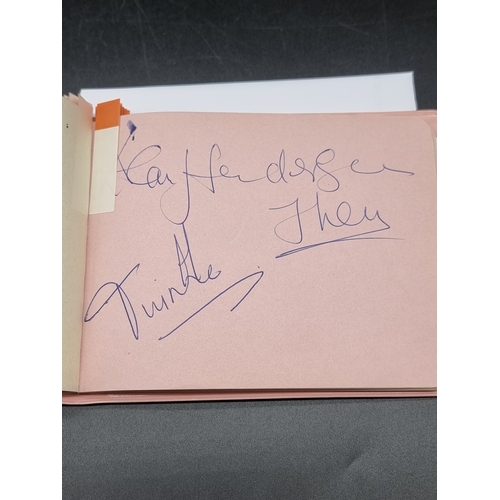 Alan Henderson
Them
Twinkle